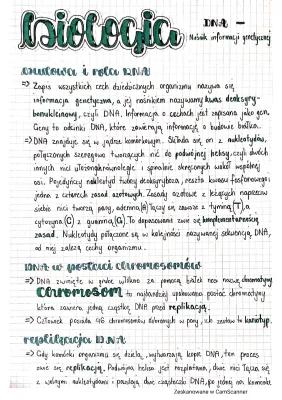 biologia
DNA –
Nośnik informacji genetycznej
budowa i rola DNA
⇒ Zapis wszystkich cech dziedzicznych organizmu nazywa się
informacja genetyczna, a jej nośnikiem nazywamy kwas deoksyry-
bonukleinowy, czyli DNA. Informacja o cechach jest zapisana jako gen.
Geny to odcinki DNA, które zawierają informację o budowie białka.
⇒ DNA znajduje się w jądrze komórkowym. Składa się on z nukleotydów,
połączonych szeregowo tworzących nić do podwójnej helisy, czyli dwóch
innych nici i spiralnie skręconych wokół wspólnej
osi. Pojedynczy nukleotyd tworzy deoksyryboza, reszta kwasu fosforowego i
jedna z czterech zasad azotowych. Zasady azotowe z leżących naprzeciw
siebie nici tworzą pary, adenina (A) łączy się zawsze z tyminą (T), a
cytozyna (C) z guaniną (G). To dopasowanie zwie się komplementarnością
zasad. Nukleotydy połączone są w kolejności nazywanej sekwencją DNA,
od niej zależą cechy organizmu.
DNA w postaci chromosomów
⇒ DNA zwinięte w jądrze włókno za pomocą białek nosi nazwę chromatyny
Chromosom to najbardziej upakowana postać chromatyny
która zawiera jedną cząstkę DNA przed replikacją.
⇒ Człowiek posiada 46 chromosomów dobranych w pary, ich zestaw to kariotyp.
replikacja DNA
⇒ Gdy komórki organizmu się dzielą, wytwarzają kopie DNA, ten proces
zwie się replikacją. Podwójna helisa jest rozplatana, dwie nici łączą się
z wolnymi nukleotydami i powstają dwie cząsteczki DNA, po jednej na komórkę.
Zeskanowane w CamScanner